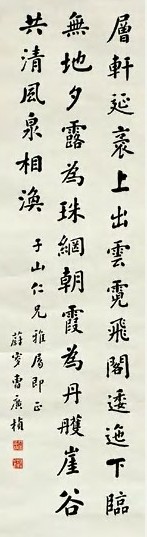 層軒延袤上出雲霓飛閣逶迤下臨
無地夕露為珠網朝霞為丹雘崖谷
共清風泉相渙
子山仁兄雅屬即正
曹廣楨